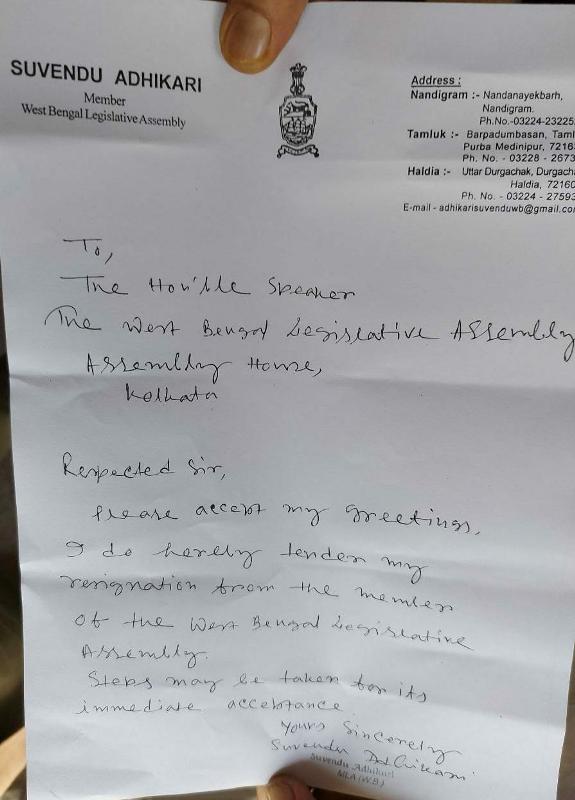 SUVENDU ADHIKARI
Member
West Bengal Legislative Assembly
Address :
Nandigram :- Nandanayekbarh,
Nandigram.
Ph.No.-03224-23225
Tamluk :- Barpadumbasan, Taml
Purba Medinipur, 7216
Ph. No. - 03228 - 2673
Haldia :- Uttar Durgachak, Durgach
Haldia, 72160
Ph. No. - 03224 - 27593
E-mail - adhikarisuvenduwb@gmail.co
To,
The Hon'ble Speaker
The West Bengal Legislative Assembly
Assembly House,
Kolkata
Respected Sir,
Please accept my greetings.
I do hereby tender my
resignation from the member
of the West Bengal Legislative
Assembly.
Steps may be taken for its
immediate acceptance
Yours Sincerely
Suvendu Adhikari
Suvendu Adhikari
MLA (W.B.)